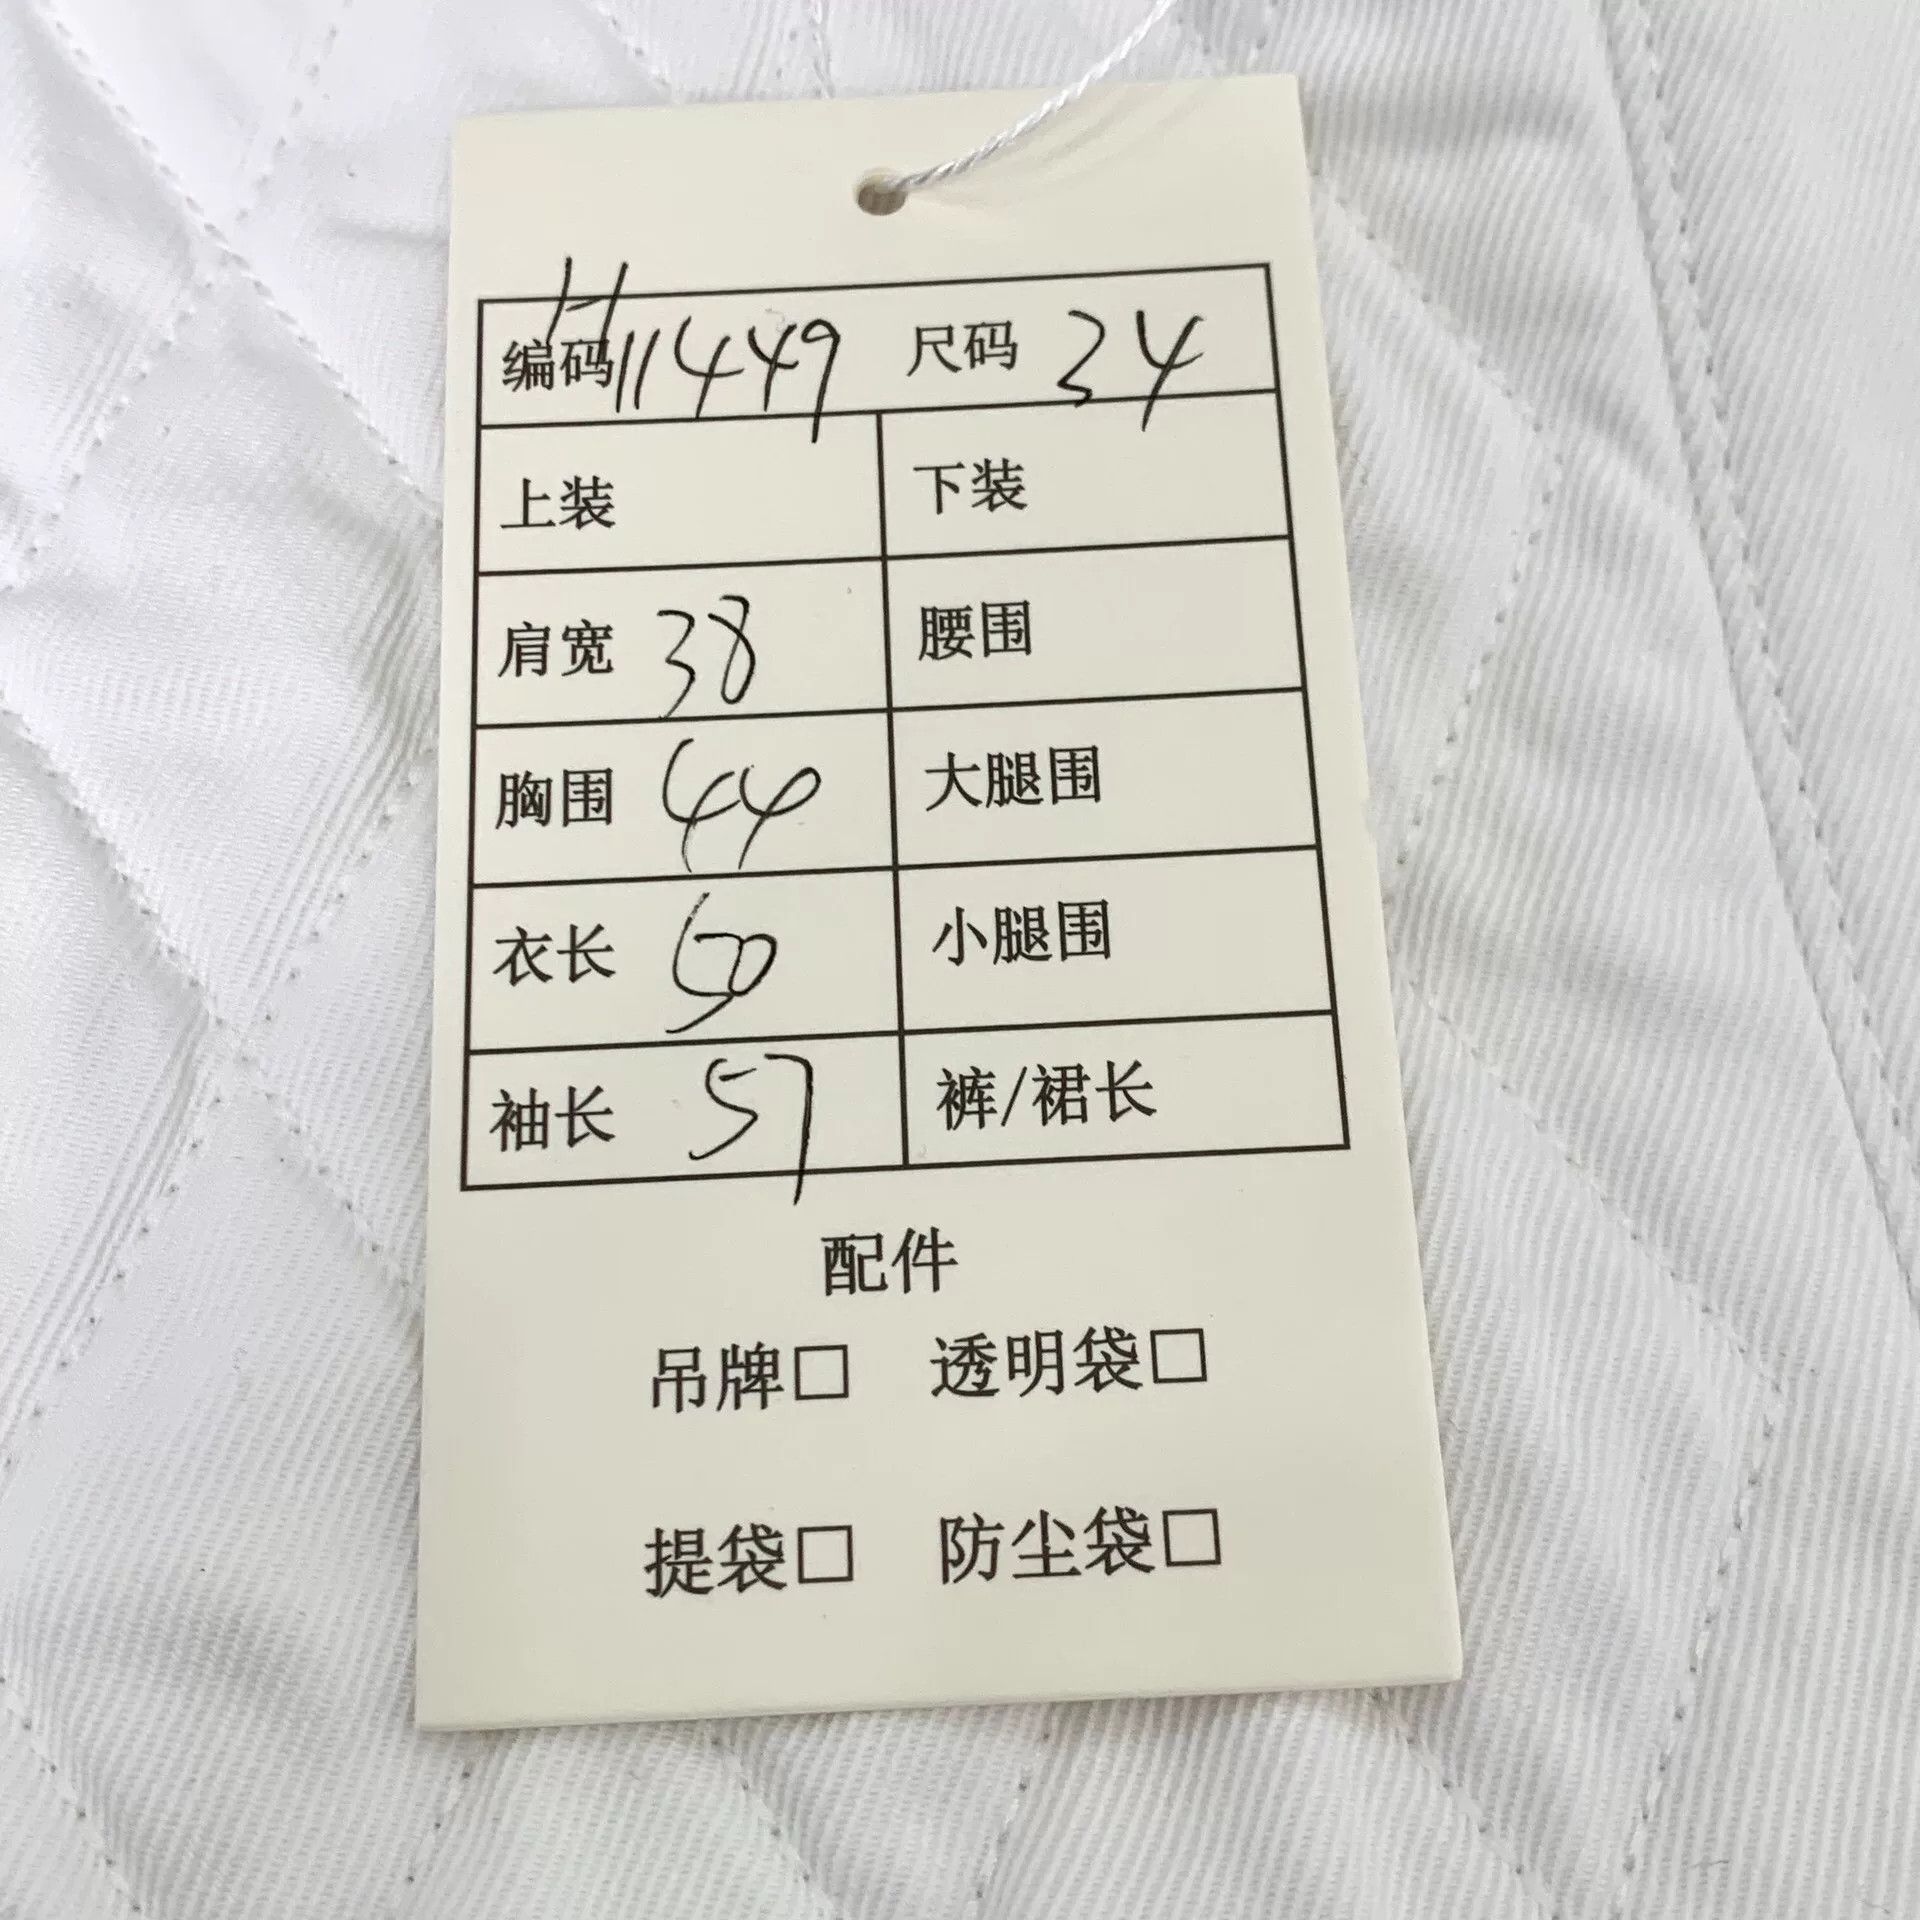 编码H11449 尺码 34
上装 下装
肩宽 38 腰围
胸围 44 大腿围
衣长 50 小腿围
袖长 57 裤/裙长
配件
吊牌□ 透明袋□
提袋□ 防尘袋□